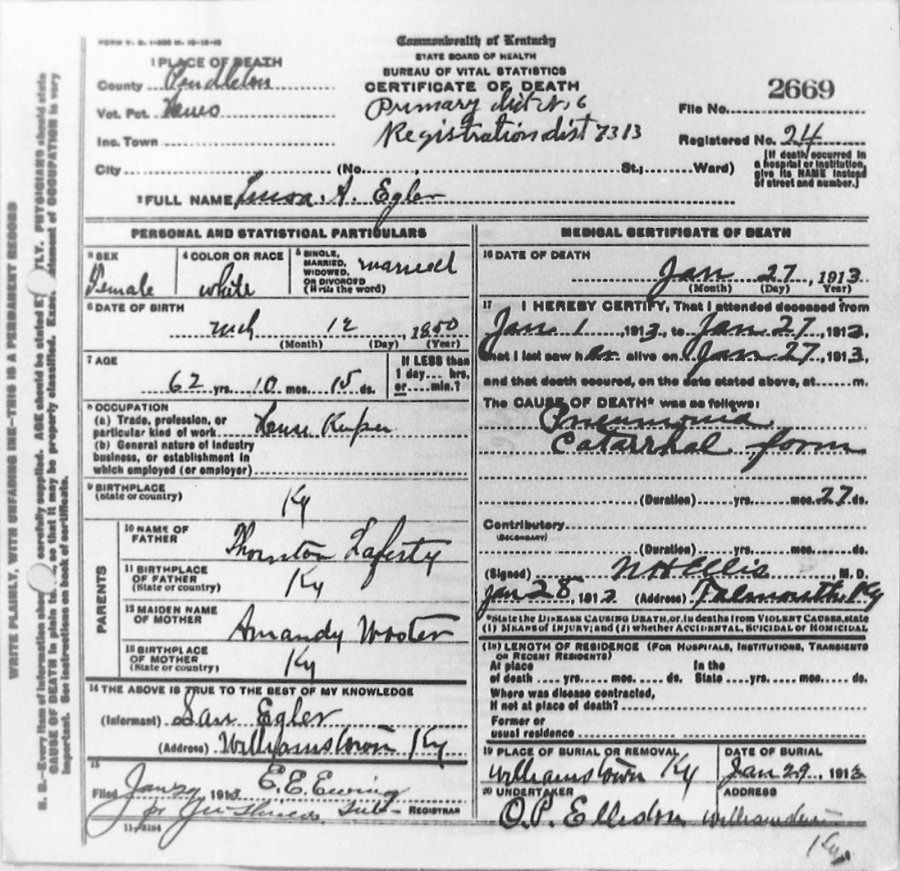 Commonwealth of Kentucky
STATE BOARD OF HEALTH
BUREAU OF VITAL STATISTICS
CERTIFICATE OF DEATH
1 PLACE OF DEATH
County Pendleton
Vot. Pct.
Inc. Town
Primary dist No. 6
Registration dist 7313
2669
File No.
Registered No. 24
City (No. , St.; Ward)
[If death occurred in
a hospital or institution,
give its NAME instead
of street and number.]
2 FULL NAME A. Egler
PERSONAL AND STATISTICAL PARTICULARS
3 SEX
Female
4 COLOR OR RACE
white
5 SINGLE,
MARRIED,
WIDOWED,
OR DIVORCED
(Write the word)
married
6 DATE OF BIRTH
mch 12 1850
(Month) (Day) (Year)
7 AGE
62 yrs. 10 mos. 15 ds.
If LESS than
1 day.... hrs,
or.....min.?
8 OCCUPATION
(a) Trade, profession, or
particular kind of work House Keper
(b) General nature of industry
business, or establishment in
which employed (or employer)
9 BIRTHPLACE
(State or country)
Ky
PARENTS
10 NAME OF
FATHER
Thornton Laferty
11 BIRTHPLACE
OF FATHER
(State or country)
Ky
12 MAIDEN NAME
OF MOTHER
Amandy Wooter
13 BIRTHPLACE
OF MOTHER
(State or country)
Ky
14 THE ABOVE IS TRUE TO THE BEST OF MY KNOWLEDGE
(Informant) Egler
(Address) Williamstown Ky
15
Filed Jan 29 1913 E. E. Ewing
Sub- REGISTRAR
11-3184
MEDICAL CERTIFICATE OF DEATH
16 DATE OF DEATH
Jan 27, 1913
(Month) (Day) (Year)
17 I HEREBY CERTIFY, That I attended deceased from
Jan 1, 1913, to Jan 27, 1913,
that I last saw her alive on Jan 27, 1913,
and that death occured, on the date stated above, at m.
The CAUSE OF DEATH* was as follows:
Pneumonia
Catarrhal form
(Duration) yrs. mos. 27 ds.
Contributory
(SECONDARY)
(Duration) yrs. mos. ds.
(Signed) N H Ellis M. D.
Jan 28, 1913 (Address) Falmouth Ky
*State the DISEASE CAUSING DEATH, or, in deaths from VIOLENT CAUSES, state
(1) MEANS OF INJURY; and (2) whether ACCIDENTAL, SUICIDAL or HOMICIDAL
(18) LENGTH OF RESIDENCE (FOR HOSPITALS, INSTITUTIONS, TRANSIENTS
OR RECENT RESIDENTS)
At place
of death yrs. mos. ds.
In the
State yrs. mos. ds.
Where was disease contracted,
If not at place of death?
Former or
usual residence
19 PLACE OF BURIAL OR REMOVAL
Williamstown Ky
DATE OF BURIAL
Jan 29, 1913
20 UNDERTAKER
O. P. Elliston
ADDRESS
Williamstown
Ky
WRITE PLAINLY, WITH UNFADING INK—THIS IS A PERMANENT RECORD
N. B.—Every item of information should carefully supplied. AGE should be stated PHYSICIANS should state
CAUSE OF DEATH in plain so that it may be properly classified. Exac. statement of OCCUPATION is very
important. See instructions on back of certificate.